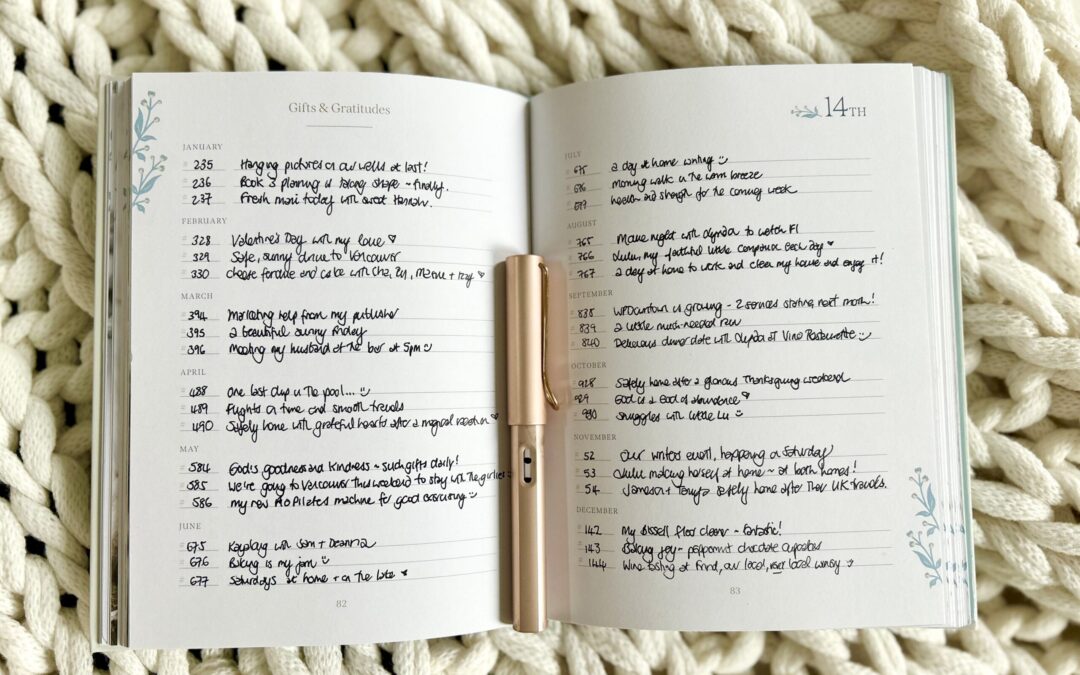 Gifts & Gratitudes
JANUARY
235 Hanging pictures on our walls at last!
236 Book 3 planning is taking shape ~ finally.
237 Fresh mani today with sweet Hannah.
FEBRUARY
328 Valentine's Day with my love ♡
329 Safe, sunny drive to Vancouver
330 cheese fondue and cake with + Izzy ♡
MARCH
394 Marketing help from my publisher
395 a beautiful sunny Friday
396 Meeting my husband at the bar at 5pm ☺
APRIL
488 one last dip in the pool... ☺
489 flights on time and smooth travels
490 Safely home with grateful hearts after a magical vacation ♡
MAY
584 God's goodness and kindness ~ such gifts daily!
585 we're going to Vancouver this weekend to stay with the girlies
586 my new Pilates machine for good exercising ☺
JUNE
675 Kayaking with Sam + Deanna
676 Baking is my jam ☺
677 Saturdays at home + on the lake ♥
82
14TH
JULY
675 a day at home writing ☺
676 morning walk in the warm breeze
677 health and strength for the coming week
AUGUST
765 Movie night with to watch F1
766 Lulu, my faithful little companion each day ♥
767 a day at home to work and clean my house and enjoy it!
SEPTEMBER
838 is growing - 2 services starting next month!
839 a little much-needed rain
840 Delicious dinner date with at Vino Ristorante ☺
OCTOBER
928 Safely home after a glorious Thanksgiving weekend
929 God is a God of abundance ♥
930 snuggles with little Lu ☺
NOVEMBER
52 our writers event, happening on Saturday
53 Lulu making herself at home ~ at both homes!
54 Jameson + Tanya safely home after their UK travels.
DECEMBER
142 My Bissell floor cleaner ~ fantastic!
143 Baking joy ~ peppermint chocolate cupcakes
144 Wine tasting at , our local, local winery ☺
83